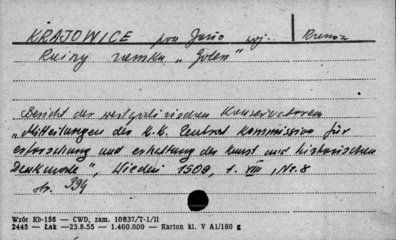 KRAJOWICE pow Jasło woj. Krosno
Ruiny zamku „Golesz”
Bericht der westgalizischen Konservatoren
„Mitteilungen der K.K. Central Kommission für
erforschung und erhaltung der kunst und historischen
Denkmale”, Wiedeń 1909, t. VIII, Nr. 8
str. 394
Wzór Kb-156 — CWD, zam. 10837/T-1/II
2445 — Łak —23.8.55 — 1.400.000 — Karton kl. V A1/180 g